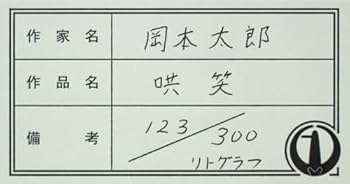 作家名 岡本太郎
作品名 哄笑
備考 123/300
リトグラフ